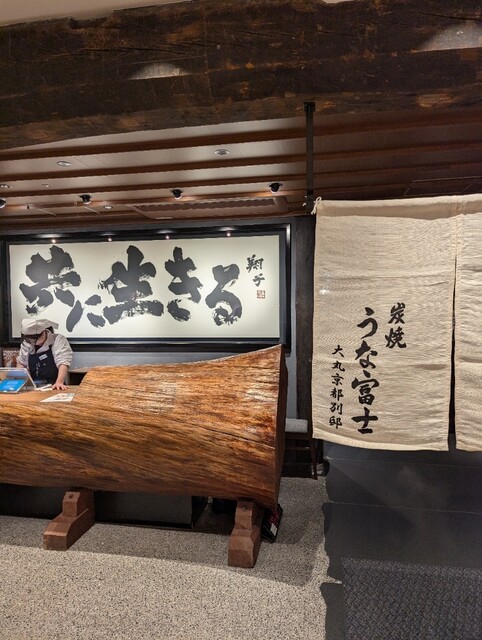 共に生きる
翔子
炭焼
うな富士
大丸京都別邸